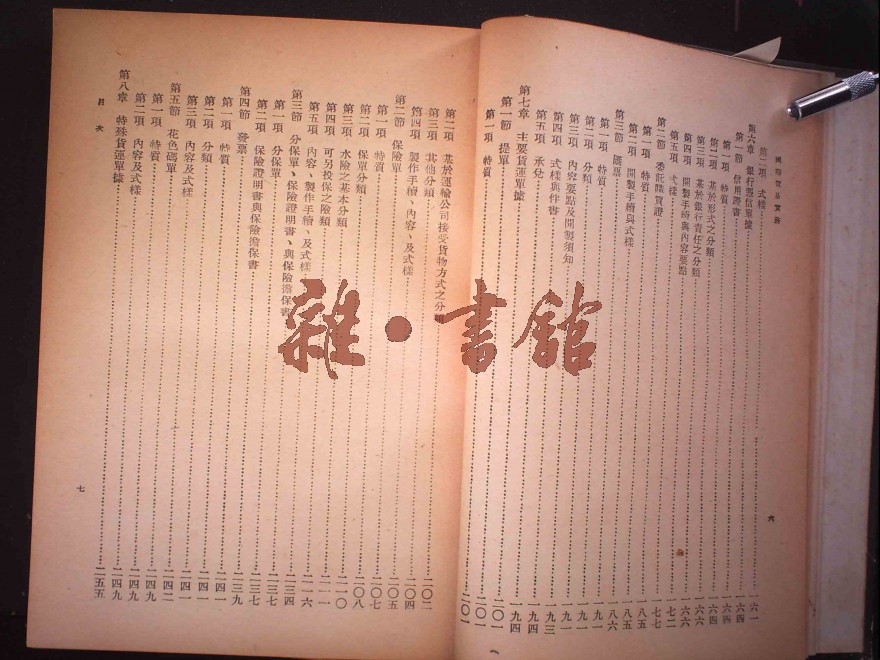 國際貿易實務
第二項 式樣……一六一
第六章 銀行憑信單據……一六四
第一節 信用證書……一六四
第一項 特質……一六四
第二項 基於形式之分類……一六四
第三項 基於銀行責任之分類……一六六
第四項 開製手續與內容要點……一六六
第五項 式樣……一七二
第二節 委託購買證……一七七
第一項 特質……一七七
第二項 開製手續與式樣……一八五
第三節 匯票……一八五
第一項 特質……一八六
第二項 分類……一九一
第三項 內容要點及開製須知……一九一
第四項 式樣與伴書……一九一
第五項 承兌……一九三
第七章 主要貨運單據……一九四
第一節 提單……二〇一
第一項 特質……二〇一
六
第二項 基於運輸公司接受貨物方式之分類
第三項 其他分類……二〇二
第四項 製作手續、內容、及式樣……二〇四
第二節 保險單……二〇五
第一項 特質……二〇七
第二項 保單分類……二〇八
第三項 水險之基本分類……二一〇
第四項 可另投保之險類……二一一
第五項 內容、製作手續、及式樣……二一六
第三節 分保單、保險證明書、與保險擔保書……二三四
第一項 分保單……二三七
第二項 保險證明書與保險擔保書……二三七
第四節 發票……二三九
第一項 特質……二四一
第二項 分類……二四一
第三項 內容及式樣……二四一
第五節 花色碼單……二四二
第一項 特質……二四九
第二項 內容及式樣……二四九
第八章 特殊貨運單據……二五五
目次
七
雜·書館